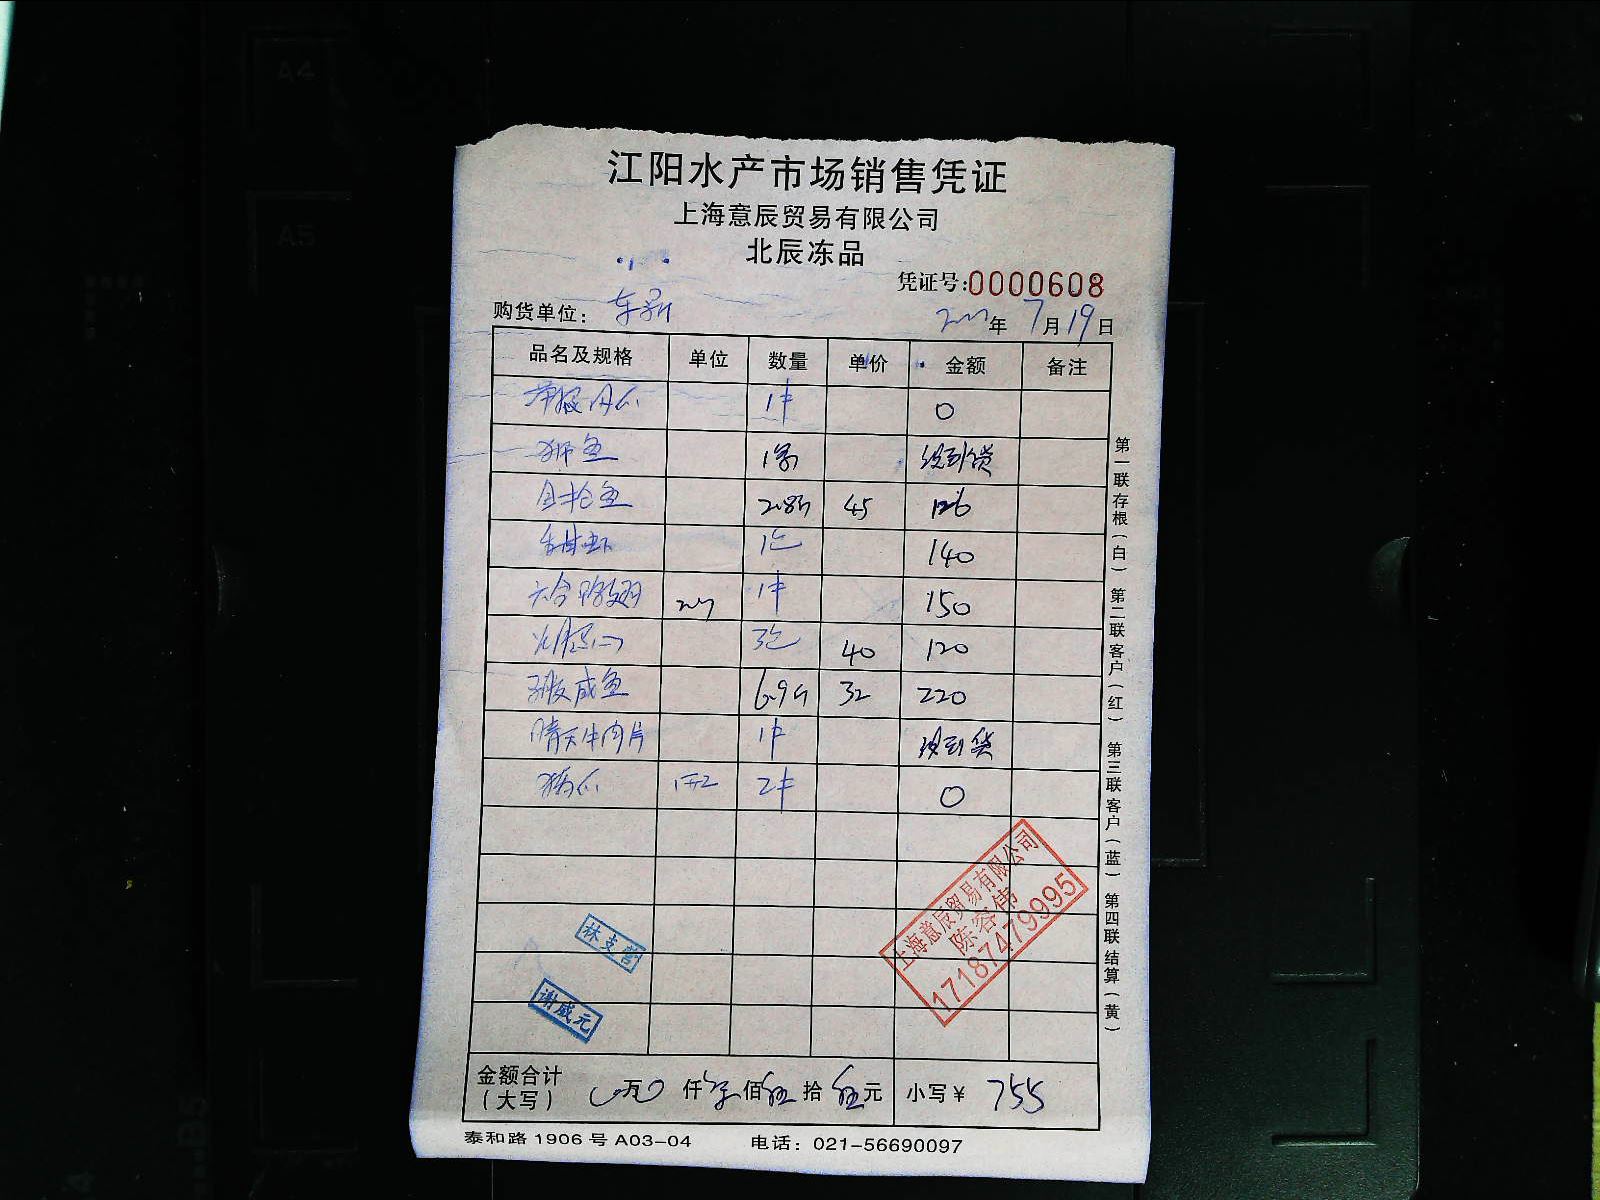 A4
A5
江阳水产市场销售凭证
上海意辰贸易有限公司
北辰冻品
凭证号:0000608
购货单位: 年 7月19日
品名及规格 单位 数量 单价 金额 备注
1件 0
鱼 1条 没到货
自抢鱼 2.8斤 45 126
虾 1包 140
六合鸡翅 1件 150
3包 40 120
咸鱼 6.9斤 32 220
晴天牛肉片 1件 没到货
2件 0
第一联存根(白) 第二联客户(红) 第三联客户(蓝) 第四联结算(黄)
上海意辰贸易有限公司
陈容伟
17187479995
林支营
谢威元
金额合计(大写) 0万0仟柒佰伍拾伍元 小写¥ 755
泰和路1906号A03-04 电话:021-56690097
B5